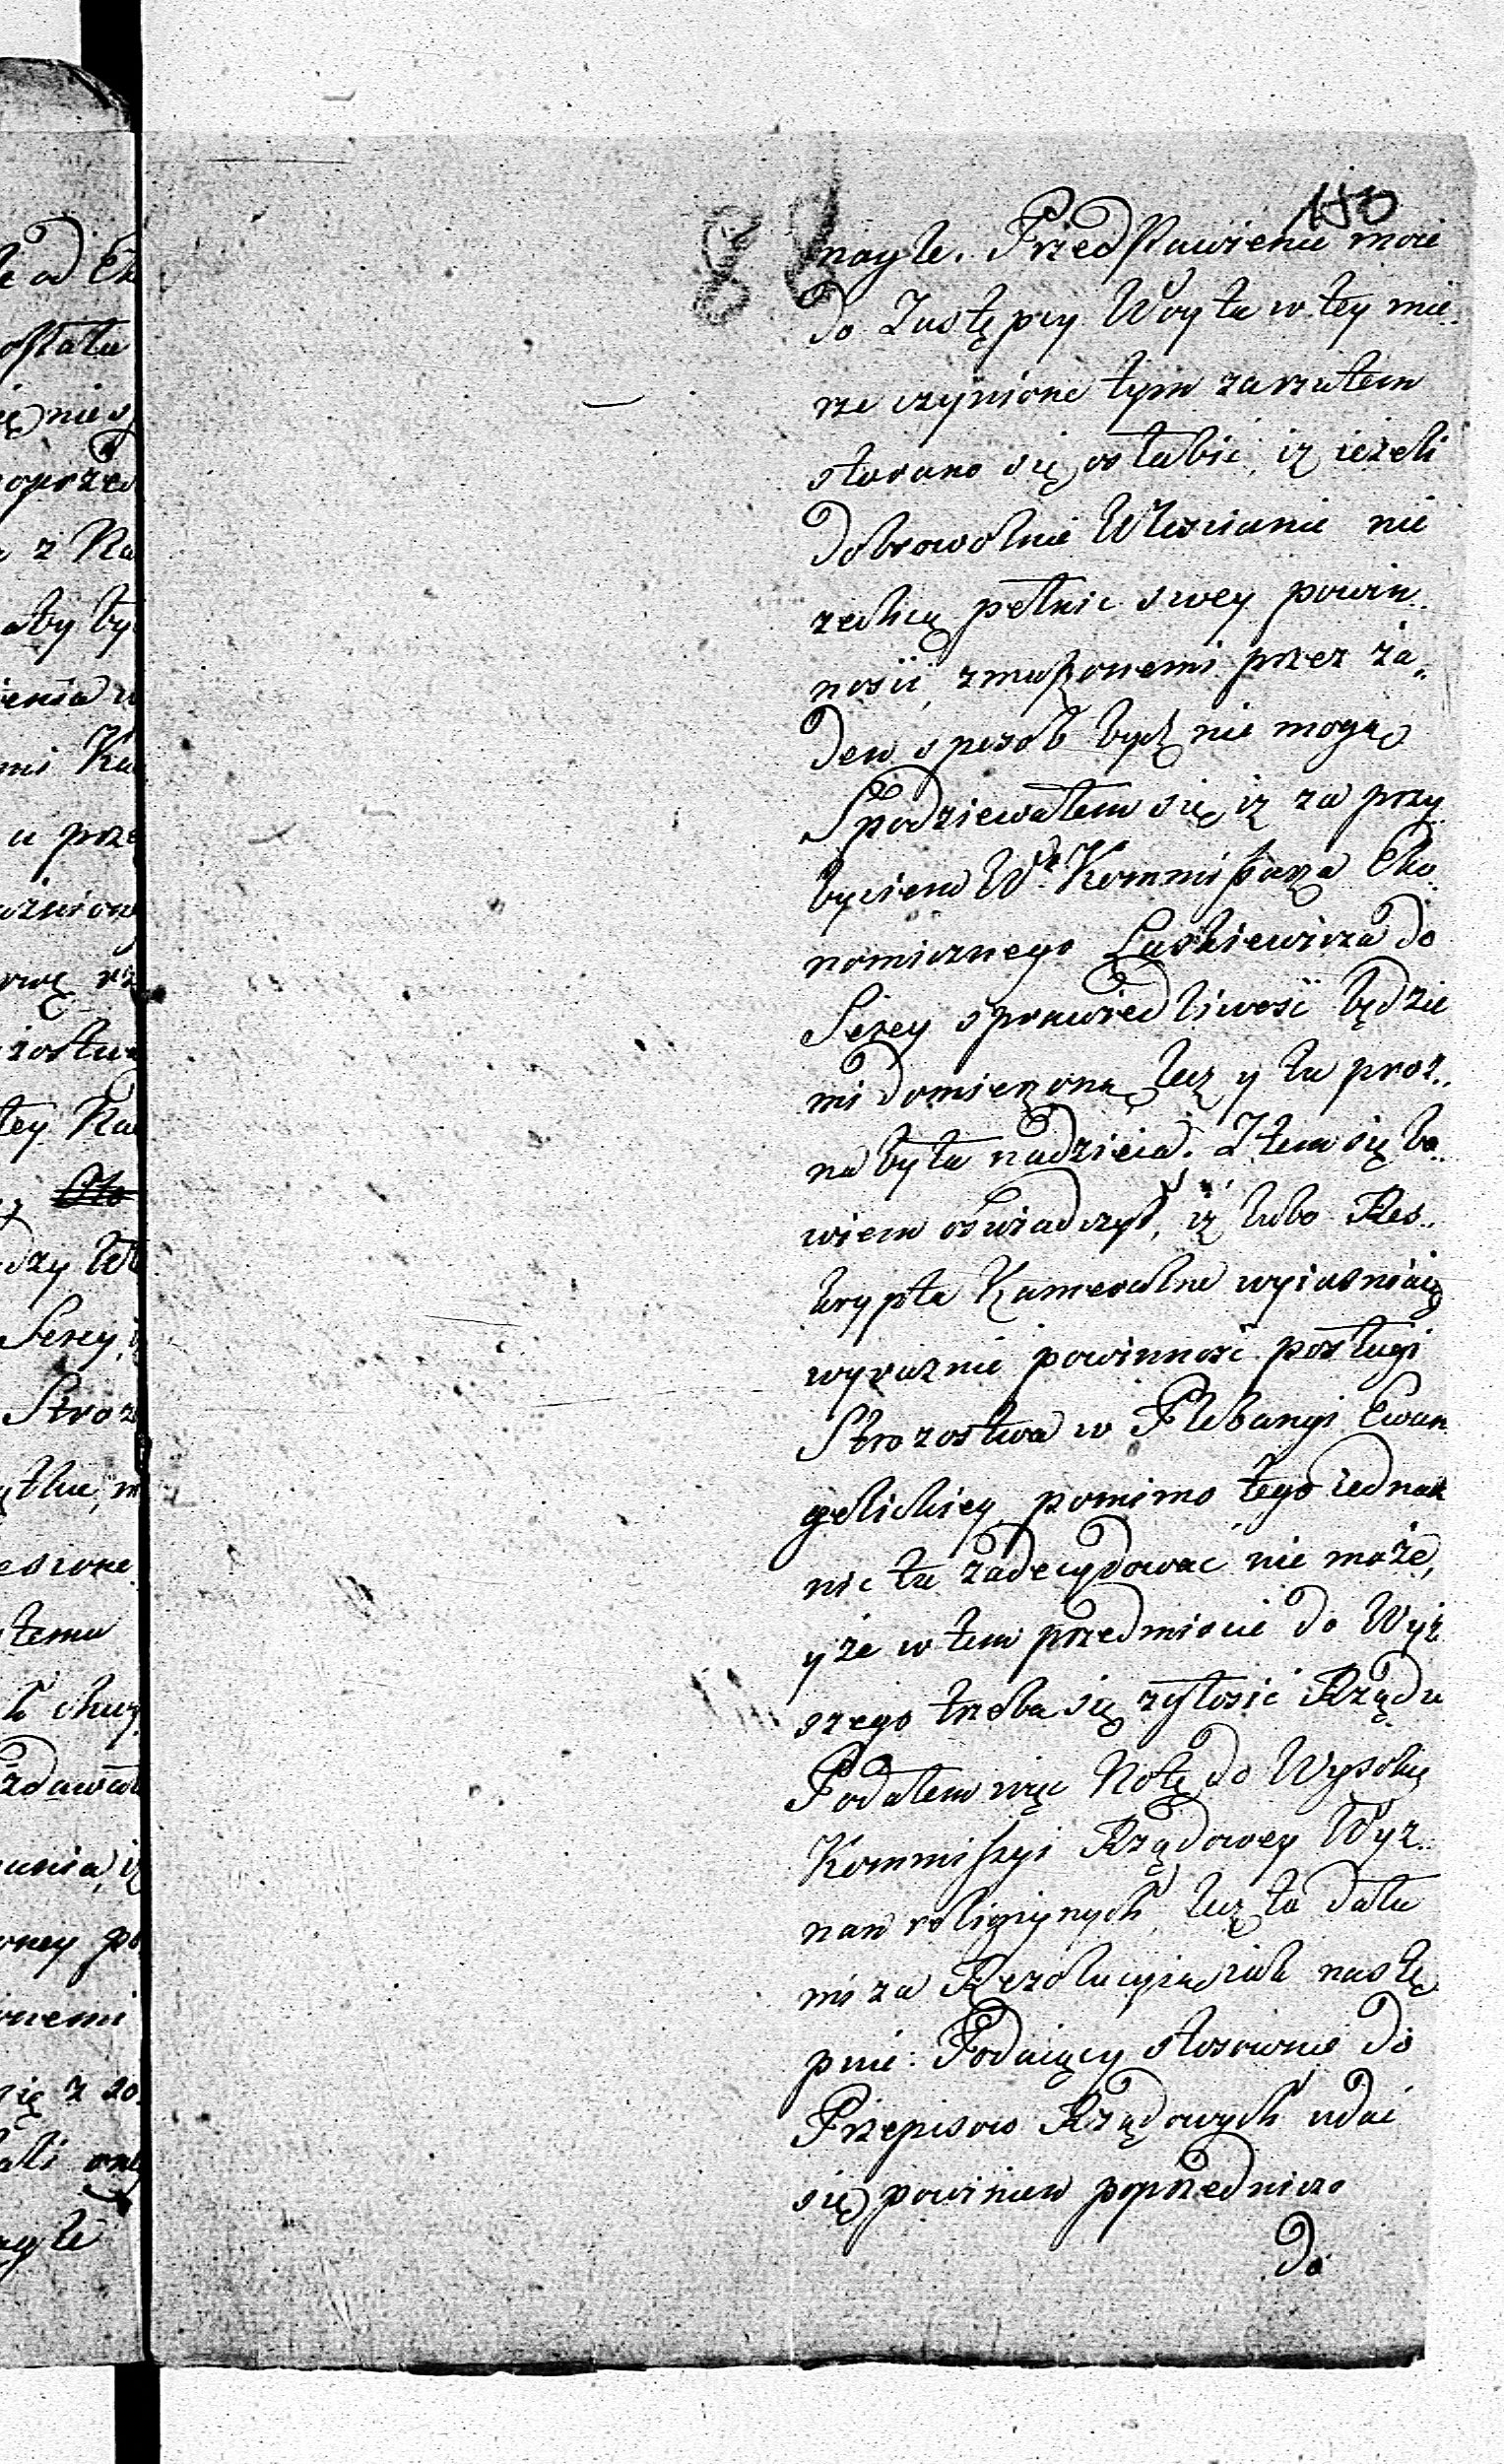 150
88
nagle. Przedstawienie moie
do Zastępcy Woyta w tey mie..
rze czynione tym zarzutem
starano się osłabić, iż ieżeli
dobrowolnie Włościanie nie
zechcą pełnić swey powin..
ności, zmuszonemi przez ża„
den sposób bydź nie mogą
Spodziewałem się, iż za przy
byciem Wo Kommissarza Eko
nomicznego Laskiewicza do
Serey sprawiedliwość będzie
mi domierzoną, lecz y ta proż..
na była nadzieia. Ten się bo..
wiem oświadczył, iż lubo Res..
krypta Kameralne wyiaśniaią
wyraznie powinność posługi
Strozostwa w Plebanyi Ewan
gelickiey, pomimo tego iednak
nic tu zadecydować nie może,
y że w tem przedmiocie do Wyż
szego trzeba się zgłosić Rządu
Podałem więc Notę do Wysokiey
Kommissyi Rządowey Wyz..
nan religijnych, lecz ta dała
mi za Rezolucyią iak nastę
pnie: Podaiący stosownie do
Przepisow Rządowych udać
się powinien poprzedniczo
do
le od
ostała
się nie
poprzed
z Ka
aby by
enia
Ka
a prze
ową
tey Ka
Serey,
Stroz
temu
nemi
się z
agle